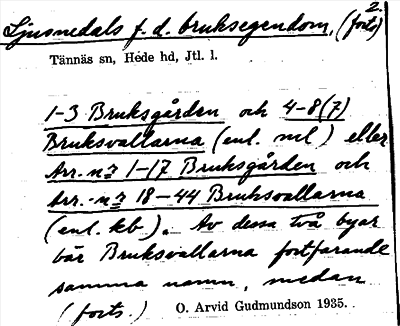 2.
Ljusnedals f. d. bruksegendom, (forts)
Tännäs sn, Hede hd, Jtl. l.
1-3 Bruksgården och 4-8(7)
Bruksvallarna (enl. ml) eller
Arr. nr 1-17 Bruksgården och
Arr. nr 18-44 Bruksvallarna
(enl. kb). Av dessa två byar
bär Bruksvallarna fortfarande
samma namn, medan
(forts.) O. Arvid Gudmundson 1935.